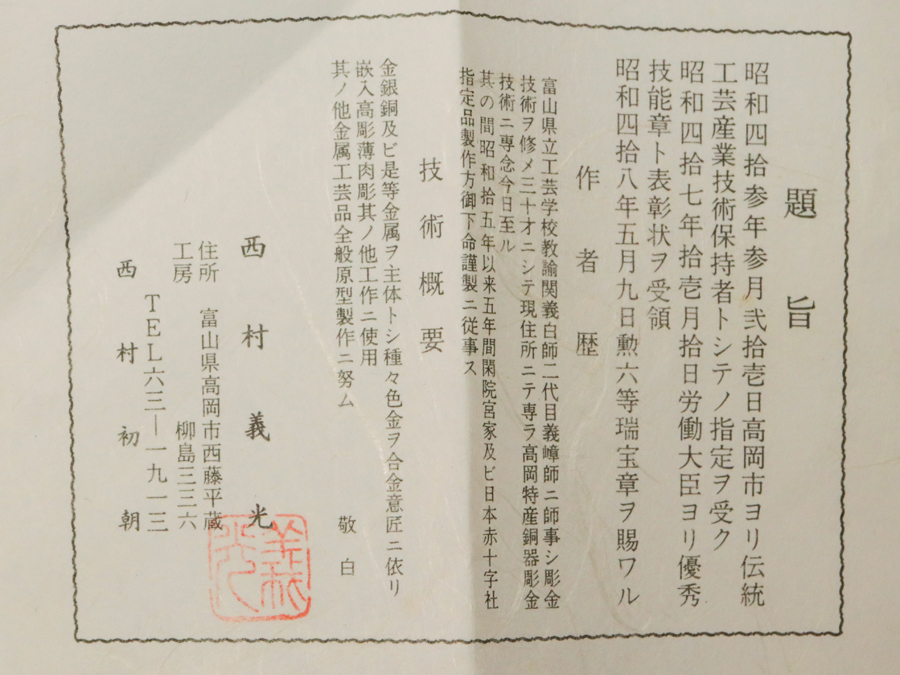 題旨
昭和四拾参年参月弐拾壱日高岡市ヨリ伝統
工芸産業技術保持者トシテノ指定ヲ受ク
昭和四拾七年拾壱月拾日労働大臣ヨリ優秀
技能章ト表彰状ヲ受領
昭和四拾八年五月九日勲六等瑞宝章ヲ賜ワル
作者歴
富山県立工芸学校教諭関義白師二代目義嶂師ニ師事シ彫金
技術ヲ修メ三十才ニシテ現住所ニテ専ラ高岡特産銅器彫金
技術ニ専念今日至ル
其の間昭和拾五年以来五年間閑院宮家及ビ日本赤十字社
指定品製作方御下命謹製ニ従事ス
技術概要
金銀銅及ビ是等金属ヲ主体トシ種々色金ヲ合金意匠ニ依リ
嵌入高彫薄肉彫其ノ他工作ニ使用
其ノ他金属工芸品全般原型製作ニ努ム
敬白
西村義光
住所 富山県高岡市西藤平蔵
工房 柳島三三六
TEL六三―一九一三
西村初朝
義光